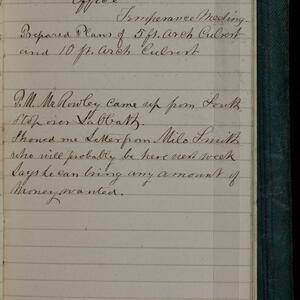 Office
Temperance Meeting.
Prepared Plans of 5 ft. Arch Culvert
and 10 ft. Arch Culvert
P.M. McRowley came up from South
stop over Sabbath.
Showed me Letter from Milo Smith
who will probably be here next week
Says he can bring any amount of
Money wanted.